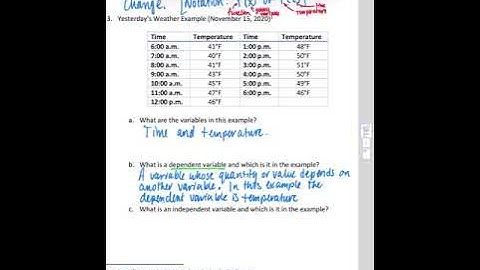 change. [Notation: f(x) or
function
temperature
3. Yesterday's Weather Example (November 15, 2020)
Time Temperature Time Temperature
6:00 a.m. 41°F 1:00 p.m. 48°F
7:00 a.m. 40°F 2:00 p.m. 50°F
8:00 a.m. 41°F 3:00 p.m. 51°F
9:00 a.m. 43°F 4:00 p.m. 50°F
10:00 a.m. 45°F 5:00 p.m. 49°F
11:00 a.m. 47°F 6:00 p.m. 46°F
12:00 p.m. 46°F
a. What are the variables in this example?
Time and temperature.
b. What is a dependent variable and which is it in the example?
A variable whose quantity or value depends on
another variable. In this example the
dependent variable is temperature
c. What is an independent variable and which is it in the example?